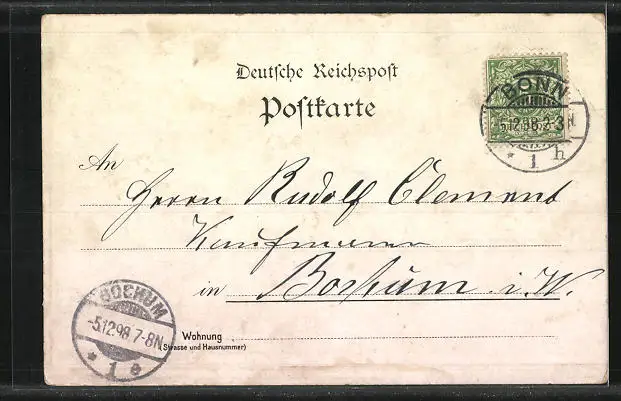 Deutsche Reichspost
Postkarte
BONN
5.12.98. 2-3N
* 1 h
An
Herrn Rudolf Clement
Kaufmann
in Bochum i. W.
BOCHUM
-5.12.98 7-8N
* 1 e
Wohnung
(Strasse und Hausnummer)